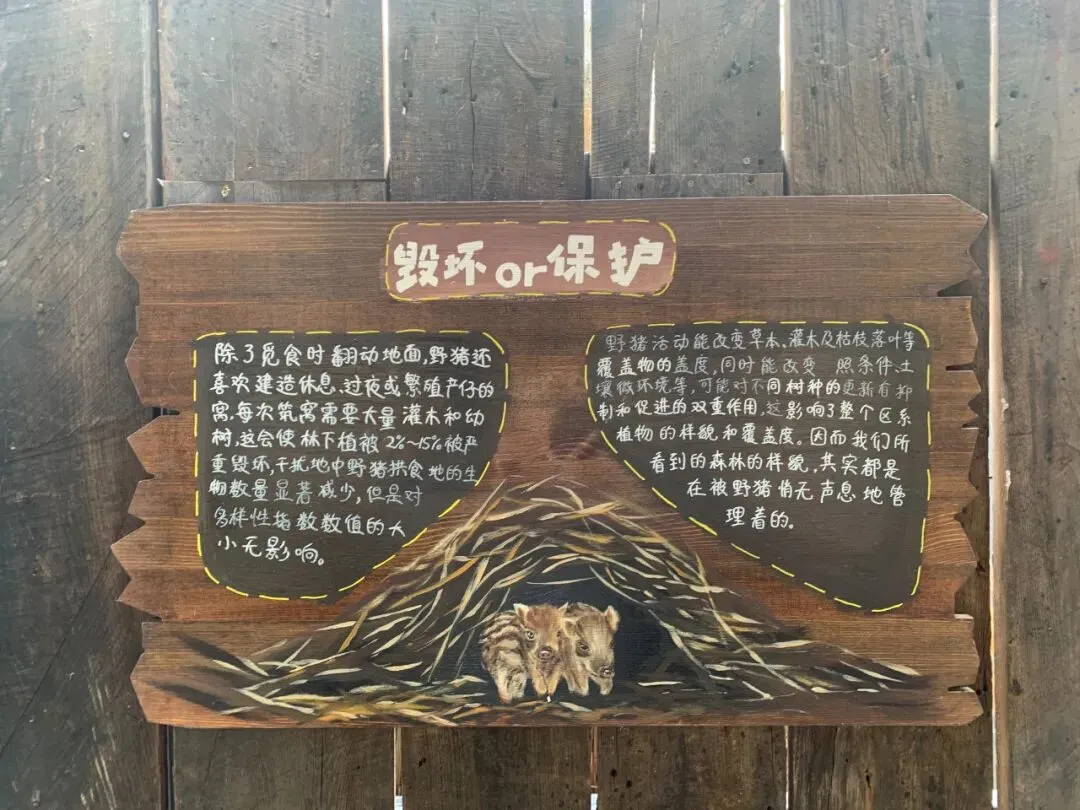 毁坏or保护
除了觅食时翻动地面,野猪还
喜欢建造休息、过夜或繁殖产仔的
窝,每次筑窝需要大量灌木和幼
树,这会使林下植被2%~15%被严
重毁坏,干扰地中野猪拱食地的生
物数量显著减少,但是对
多样性指数数值的大
小无影响。
野猪活动能改变草本、灌木及枯枝落叶等
覆盖物的盖度,同时能改变 照条件、土
壤微环境等,可能对不同树种的更新有抑
制和促进的双重作用,这影响了整个区系
植物的样貌和覆盖度。因而我们所
看到的森林的样貌,其实都是
在被野猪悄无声息地管
理着的。